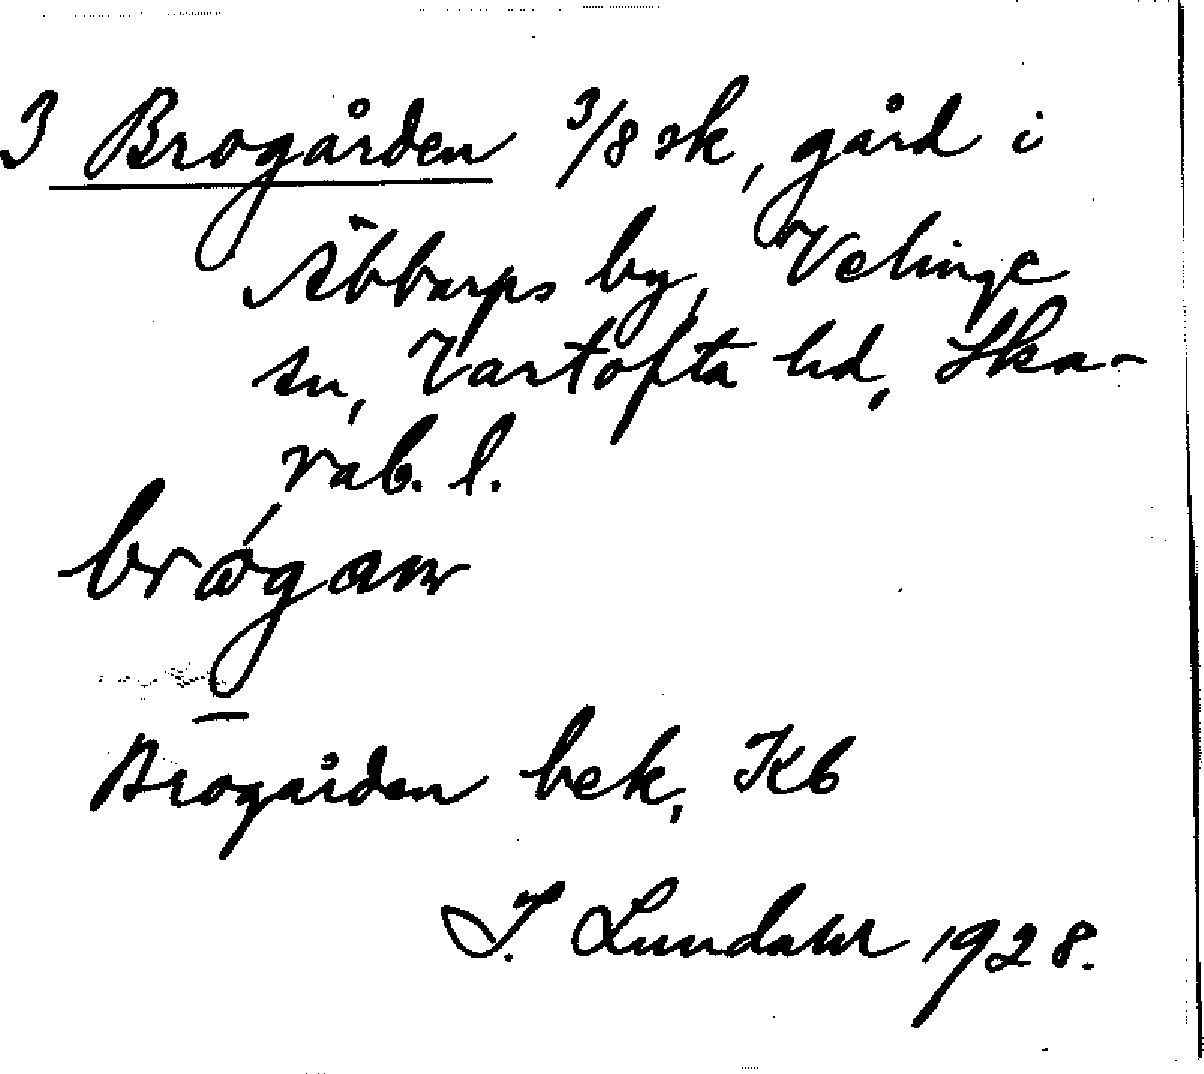 3 Brogården 3/8 sk, gård i
Äbbarps by, Velinge
sn, Vartofta hd, Ska-
rab. l.
Brogården bek, Kb
I. Lundahl 1928.